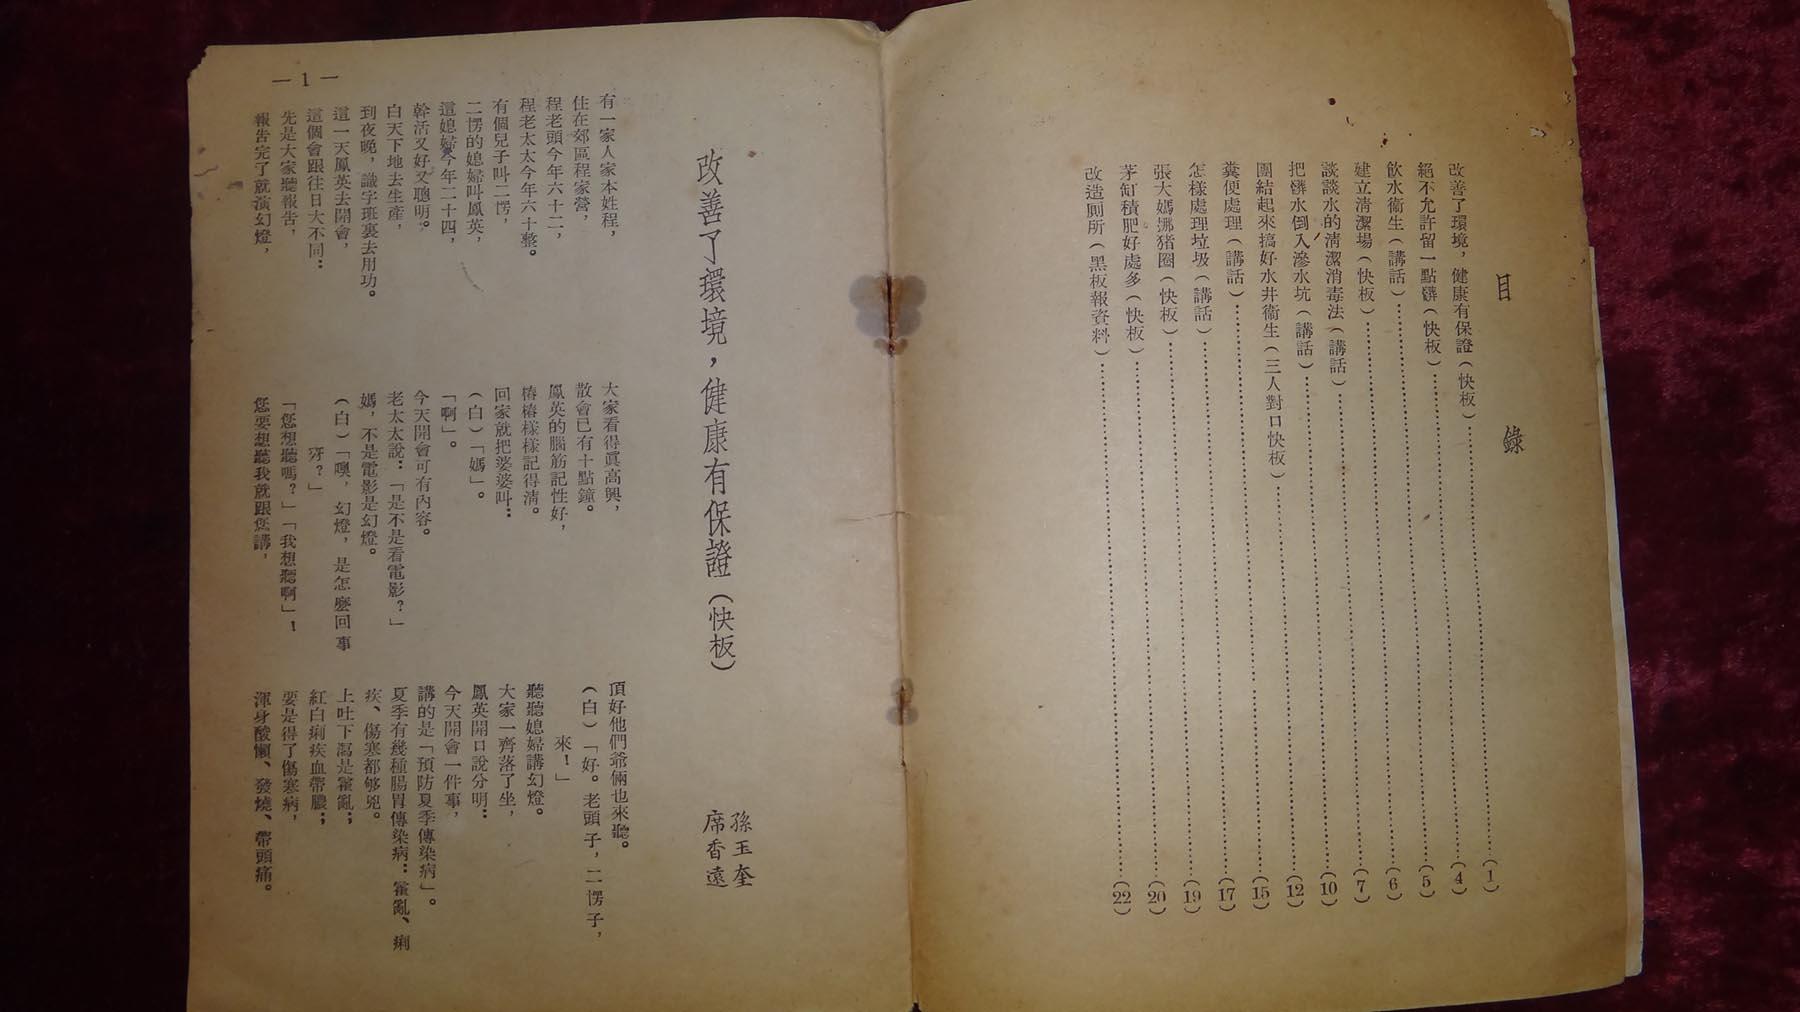 目錄
改善了環境，健康有保證（快板）……（1）
絕不允許留一點髒（快板）……（4）
飲水衞生（講話）……（5）
建立清潔場（快板）……（6）
談談水的清潔消毒法（講話）……（7）
把髒水倒入滲水坑（講話）……（10）
團結起來搞好水井衞生（三人對口快板）……（12）
糞便處理（講話）……（15）
怎樣處理垃圾（講話）……（17）
張大媽挪猪圈（快板）……（19）
茅缸積肥好處多（快板）……（20）
改造厠所（黑板報資料）……（22）
改善了環境，健康有保證（快板）
孫玉奎
席香遠
有一家人家本姓程，
住在郊區程家營，
程老頭今年六十二，
程老太太今年六十整。
有個兒子叫二愣，
二愣的媳婦叫鳳英，
這媳婦今年二十四，
幹活又好又聰明。
白天下地去生產，
到夜晚，識字班裏去用功。
這一天鳳英去開會，
這個會跟往日大不同：
先是大家聽報告，
報告完了就演幻燈，
大家看得眞高興，
散會已有十點鐘。
鳳英的腦筋記性好，
樁樁樣樣記得清。
回家就把婆婆叫：
（白）「媽」。
「啊」。
今天開會可有內容。
老太太說：「是不是看電影？」
媽，不是電影是幻燈。
（白）「噢，幻燈，是怎麽回事
呀？」
「您想聽嗎？」「我想聽啊」！
您要想聽我就跟您講，
頂好他們爺倆也來聽。
（白）「好。老頭子，二愣子，
來！」
聽聽媳婦講幻燈。
大家一齊落了坐，
鳳英開口說分明：
今天開會一件事，
講的是「預防夏季傳染病」。
夏季有幾種腸胃傳染病：霍亂、痢
疾、傷寒都够兇。
上吐下瀉是霍亂；
紅白痢疾血帶膿；
要是得了傷寒病，
渾身酸懶、發燒、帶頭痛。
—1—